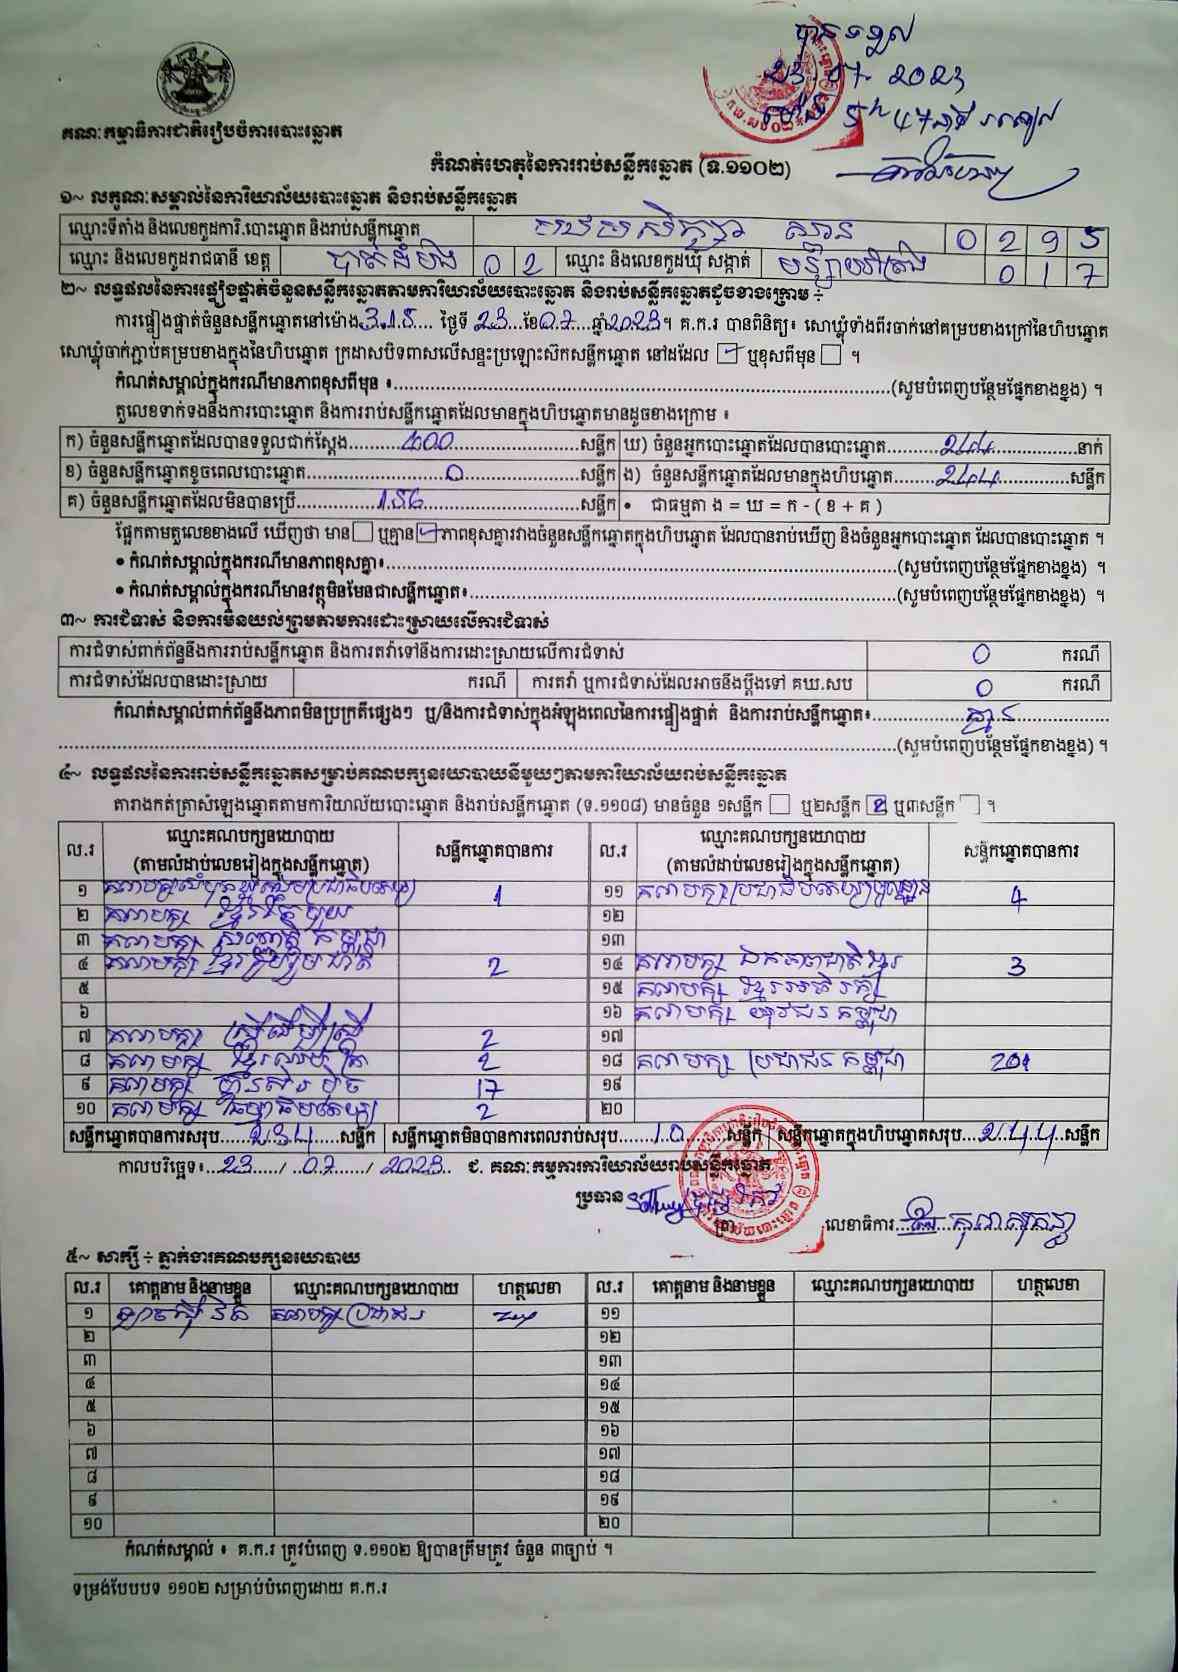 បានទទួល
23.07-2023
ម៉ោង 5h 47នាទី រសៀល
គណៈកម្មាធិការជាតិរៀបចំការបោះឆ្នោត
កំណត់ហេតុនៃការរាប់សន្លឹកឆ្នោត (ទ.១១០២)
១~ លក្ខណៈសម្គាល់នៃការិយាល័យបោះឆ្នោត និងរាប់សន្លឹកឆ្នោត
ឈ្មោះទីតាំង និងលេខកូដការិ.បោះឆ្នោត និងរាប់សន្លឹកឆ្នោត បឋមសិក្សា 0 2 9 5
ឈ្មោះ និងលេខកូដរាជធានី ខេត្ត បាត់ដំបង 0 2 ឈ្មោះ និងលេខកូដឃុំ សង្កាត់ 0 1 7
២~ លទ្ធផលនៃការផ្ទៀងផ្ទាត់ចំនួនសន្លឹកឆ្នោតតាមការិយាល័យបោះឆ្នោត និងរាប់សន្លឹកឆ្នោតដូចខាងក្រោម ÷
ការផ្ទៀងផ្ទាត់ចំនួនសន្លឹកឆ្នោតនៅម៉ោង 3.15 ថ្ងៃទី 23 ខែ 07 ឆ្នាំ 2023 ។ គ.ក.រ បានពិនិត្យ៖ សោឃ្លុំទាំងពីរចាក់នៅគម្របខាងក្រៅនៃហិបឆ្នោត
សោឃ្លុំចាក់ភ្ជាប់គម្របខាងក្នុងនៃហិបឆ្នោត ក្រដាសបិទពាសលើសន្ទះប្រឡោះស៊កសន្លឹកឆ្នោត នៅដដែល ☑ ឬខុសពីមុន ☐ ។
កំណត់សម្គាល់ក្នុងករណីមានភាពខុសពីមុន ៖ (សូមបំពេញបន្ថែមផ្នែកខាងខ្នង) ។
តួលេខទាក់ទងនឹងការបោះឆ្នោត និងការរាប់សន្លឹកឆ្នោតដែលមានក្នុងហិបឆ្នោតមានដូចខាងក្រោម ៖
ក) ចំនួនសន្លឹកឆ្នោតដែលបានទទួលជាក់ស្តែង 400 សន្លឹក ឃ) ចំនួនអ្នកបោះឆ្នោតដែលបានបោះឆ្នោត 244 នាក់
ខ) ចំនួនសន្លឹកឆ្នោតខូចពេលបោះឆ្នោត 0 សន្លឹក ង) ចំនួនសន្លឹកឆ្នោតដែលមានក្នុងហិបឆ្នោត 244 សន្លឹក
គ) ចំនួនសន្លឹកឆ្នោតដែលមិនបានប្រើ 156 សន្លឹក • ជាធម្មតា ង = ឃ = ក - ( ខ + គ )
ផ្អែកតាមតួលេខខាងលើ ឃើញថា មាន ☐ ឬគ្មាន ☑ ភាពខុសគ្នារវាងចំនួនសន្លឹកឆ្នោតក្នុងហិបឆ្នោត ដែលបានរាប់ឃើញ និងចំនួនអ្នកបោះឆ្នោត ដែលបានបោះឆ្នោត ។
• កំណត់សម្គាល់ក្នុងករណីមានភាពខុសគ្នា៖ (សូមបំពេញបន្ថែមផ្នែកខាងខ្នង) ។
• កំណត់សម្គាល់ក្នុងករណីមានវត្ថុមិនមែនជាសន្លឹកឆ្នោត៖ (សូមបំពេញបន្ថែមផ្នែកខាងខ្នង) ។
៣~ ការជំទាស់ និងការមិនយល់ព្រមតាមការដោះស្រាយលើការជំទាស់
ការជំទាស់ពាក់ព័ន្ធនឹងការរាប់សន្លឹកឆ្នោត និងការតវ៉ាទៅនឹងការដោះស្រាយលើការជំទាស់ 0 ករណី
ការជំទាស់ដែលបានដោះស្រាយ ករណី ការតវ៉ា ឬការជំទាស់ដែលអាចនឹងប្តឹងទៅ គឃ.សប 0 ករណី
កំណត់សម្គាល់ពាក់ព័ន្ធនឹងភាពមិនប្រក្រតីផ្សេងៗ ឬ/និងការជំទាស់ក្នុងអំឡុងពេលនៃការផ្ទៀងផ្ទាត់ និងការរាប់សន្លឹកឆ្នោត៖ គ្មាន
(សូមបំពេញបន្ថែមផ្នែកខាងខ្នង) ។
៤~ លទ្ធផលនៃការរាប់សន្លឹកឆ្នោតសម្រាប់គណបក្សនយោបាយនីមួយៗតាមការិយាល័យរាប់សន្លឹកឆ្នោត
តារាងកត់ត្រាសំឡេងឆ្នោតតាមការិយាល័យបោះឆ្នោត និងរាប់សន្លឹកឆ្នោត (ទ.១១០៨) មានចំនួន ១សន្លឹក ☐ ឬ២សន្លឹក 2 ឬ៣សន្លឹក ☐ ។
ល.រ ឈ្មោះគណបក្សនយោបាយ សន្លឹកឆ្នោតបានការ ល.រ ឈ្មោះគណបក្សនយោបាយ សន្លឹកឆ្នោតបានការ
(តាមលំដាប់លេខរៀងក្នុងសន្លឹកឆ្នោត) (តាមលំដាប់លេខរៀងក្នុងសន្លឹកឆ្នោត)
១ គណបក្សសំបុកឃ្មុំសង្គមប្រជាធិបតេយ្យ 1 ១១ គណបក្សប្រជាធិបតេយ្យមូលដ្ឋាន 4
២ គណបក្ស ខ្មែរតែមួយ ១២
៣ គណបក្ស សញ្ជាតិ កម្ពុជា ១៣
៤ គណបក្ស ខ្មែររួបរួមជាតិ 2 ១៤ គណបក្ស ឯកភាពជាតិខ្មែរ 3
៥ ១៥ គណបក្ស ខ្មែរអភិរក្ស
៦ ១៦ គណបក្ស យុវជន កម្ពុជា
៧ គណបក្ស ស្ត្រីដើម្បីស្ត្រី 2 ១៧
៨ គណបក្ស 2 ១៨ គណបក្ស ប្រជាជន កម្ពុជា 201
៩ គណបក្ស ហ្វ៊ុនស៊ិនប៉ិច 17 ១៩
១០ គណបក្ស ធម្មាធិបតេយ្យ 2 ២០
សន្លឹកឆ្នោតបានការសរុប 234 សន្លឹក សន្លឹកឆ្នោតមិនបានការពេលរាប់សរុប 10 សន្លឹក សន្លឹកឆ្នោតក្នុងហិបឆ្នោតសរុប 244 សន្លឹក
កាលបរិច្ឆេទ៖ 23 / 07 / 2023 ជ. គណៈកម្មការការិយាល័យរាប់សន្លឹកឆ្នោត
ប្រធាន
ត្រា លេខាធិការ
៥~ សាក្សី ÷ ភ្នាក់ងារគណបក្សនយោបាយ
ល.រ គោត្តនាម និងនាមខ្លួន ឈ្មោះគណបក្សនយោបាយ ហត្ថលេខា ល.រ គោត្តនាម និងនាមខ្លួន ឈ្មោះគណបក្សនយោបាយ ហត្ថលេខា
១ គណបក្ស ប្រជាជន ១១
២ ១២
៣ ១៣
៤ ១៤
៥ ១៥
៦ ១៦
៧ ១៧
៨ ១៨
៩ ១៩
១០ ២០
កំណត់សម្គាល់ ៖ គ.ក.រ ត្រូវបំពេញ ទ.១១០២ ឱ្យបានត្រឹមត្រូវ ចំនួន ៣ច្បាប់ ។
ទម្រង់បែបបទ ១១០២ សម្រាប់បំពេញដោយ គ.ក.រ